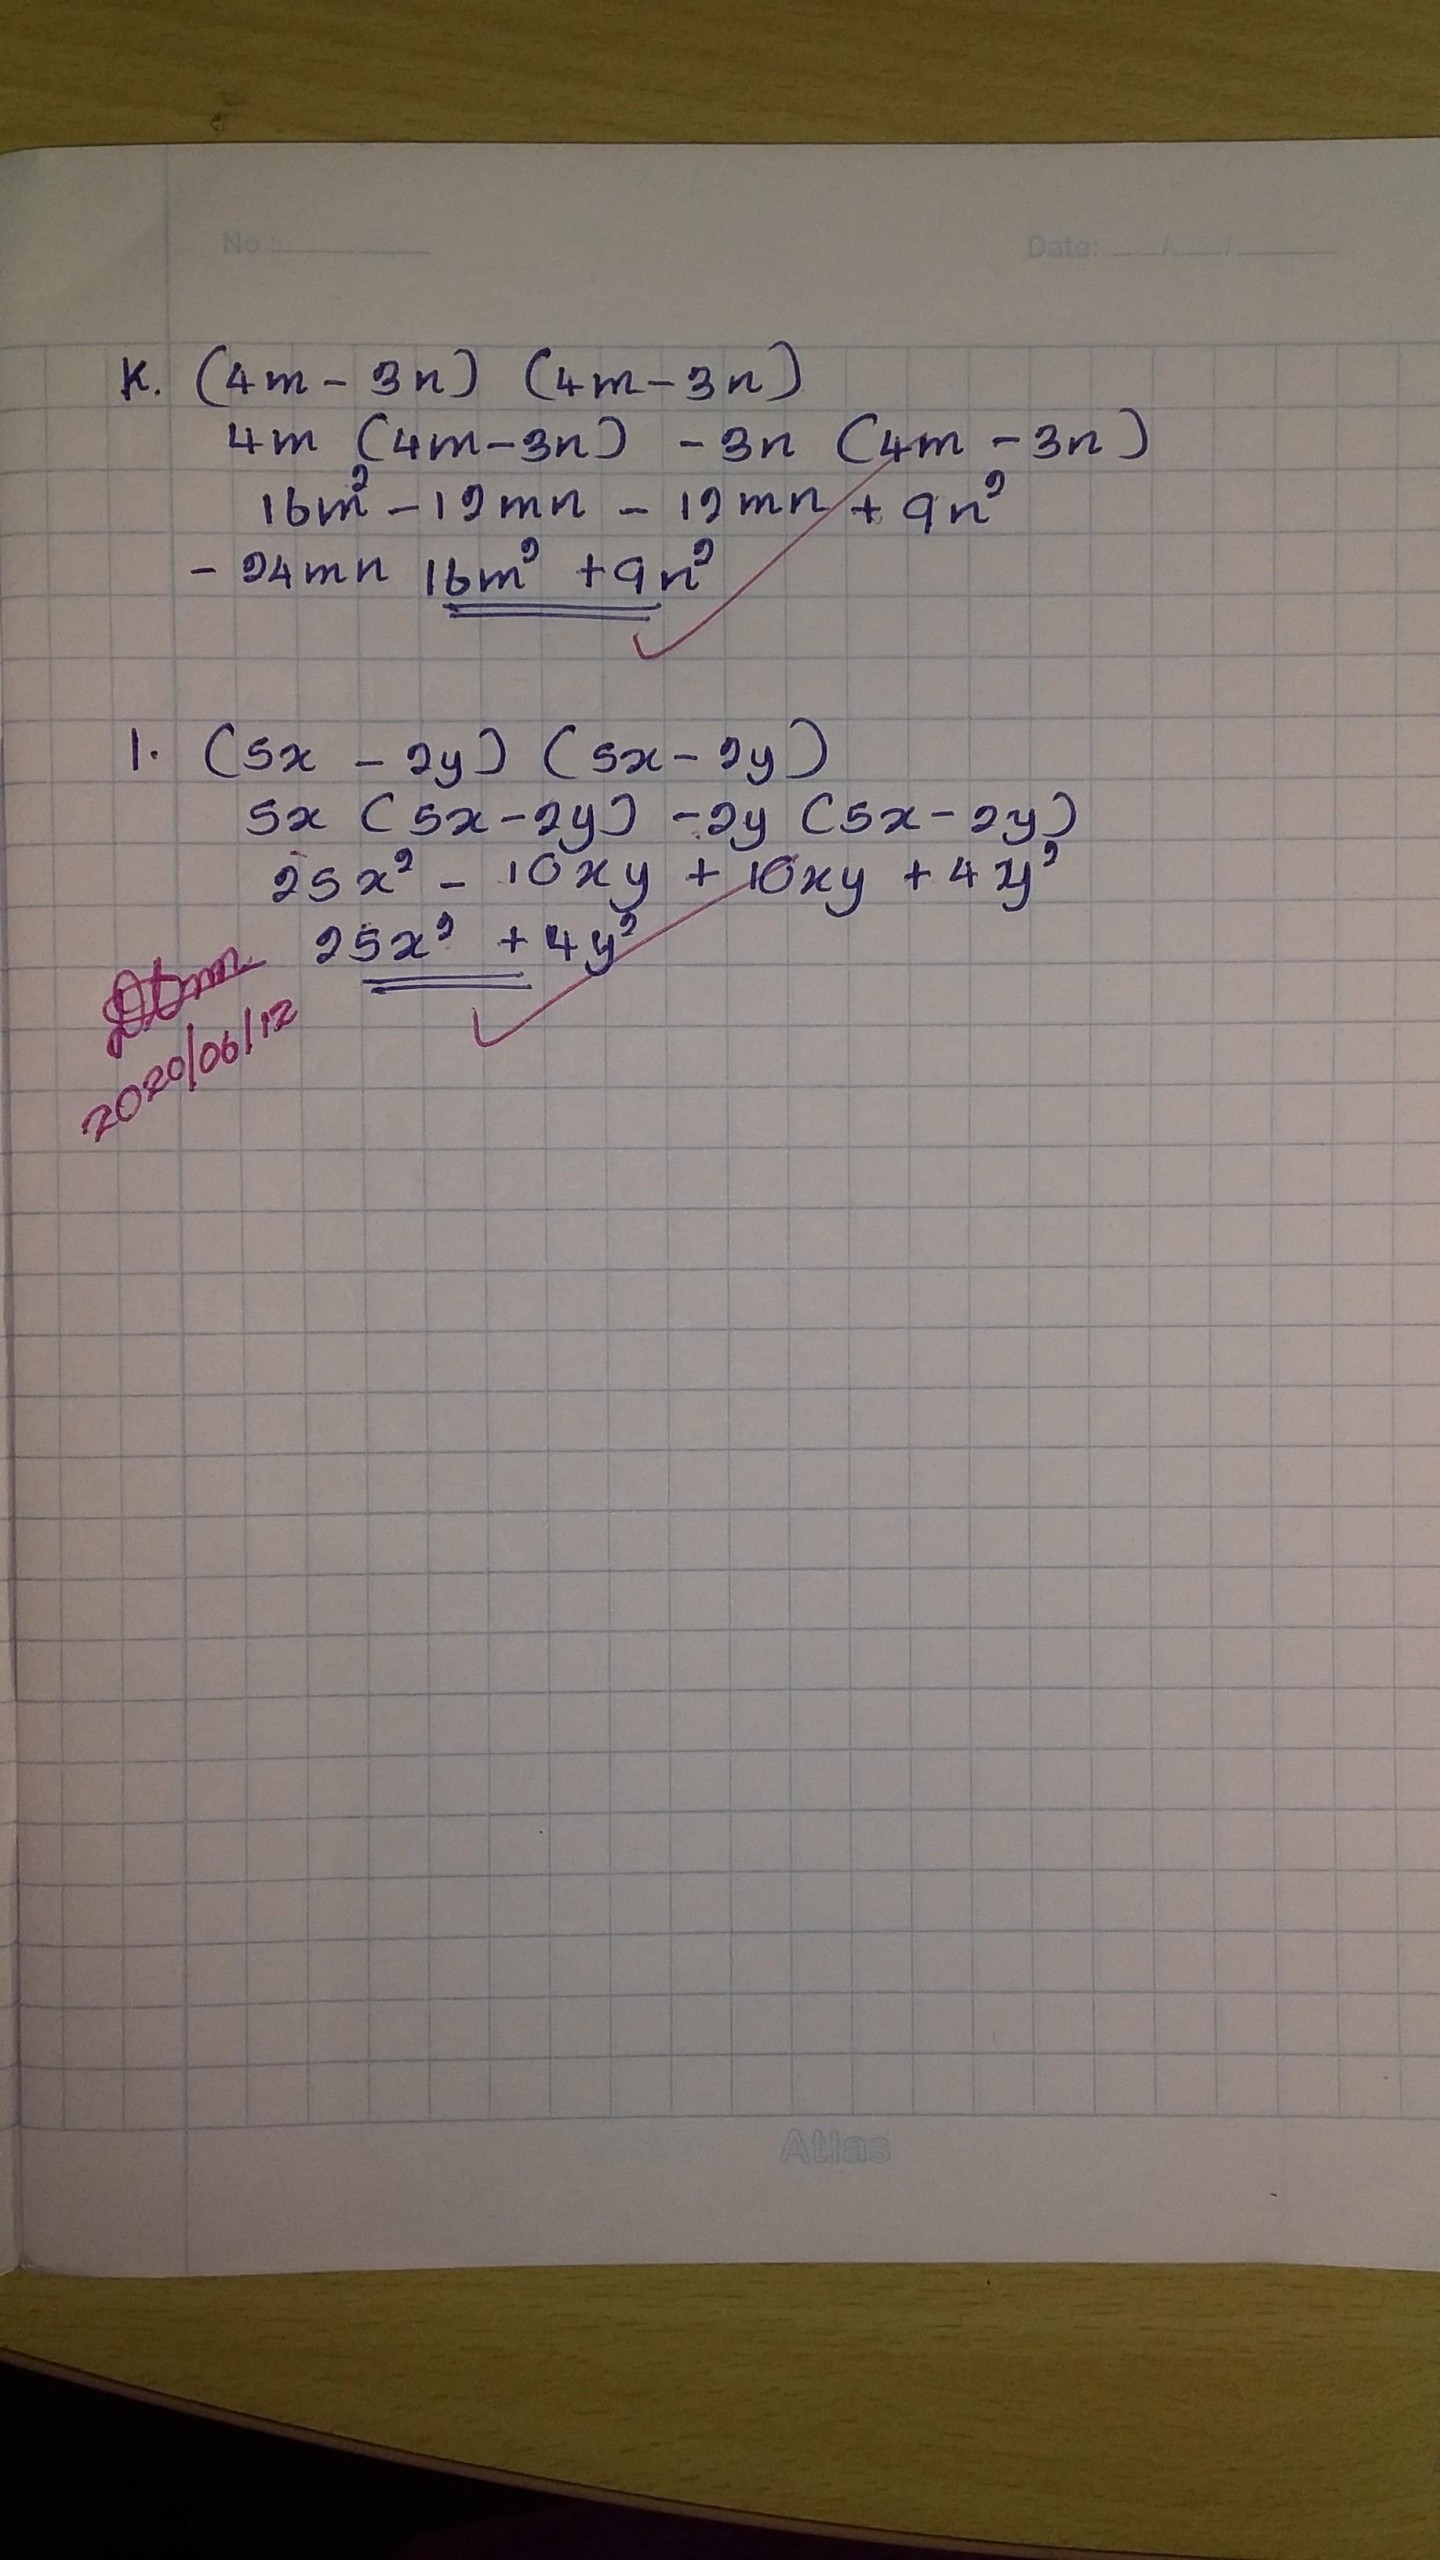 No :
Date: / /
K. (4m - 3n) (4m - 3n)
4m (4m - 3n) - 3n (4m - 3n)
16m² - 12mn - 12mn + 9n²
- 24mn 16m² + 9n²
l. (5x - 2y) (5x - 2y)
5x (5x - 2y) - 2y (5x - 2y)
25x² - 10xy + 10xy + 4y²
25x² + 4y²
2020/06/12
Atlas